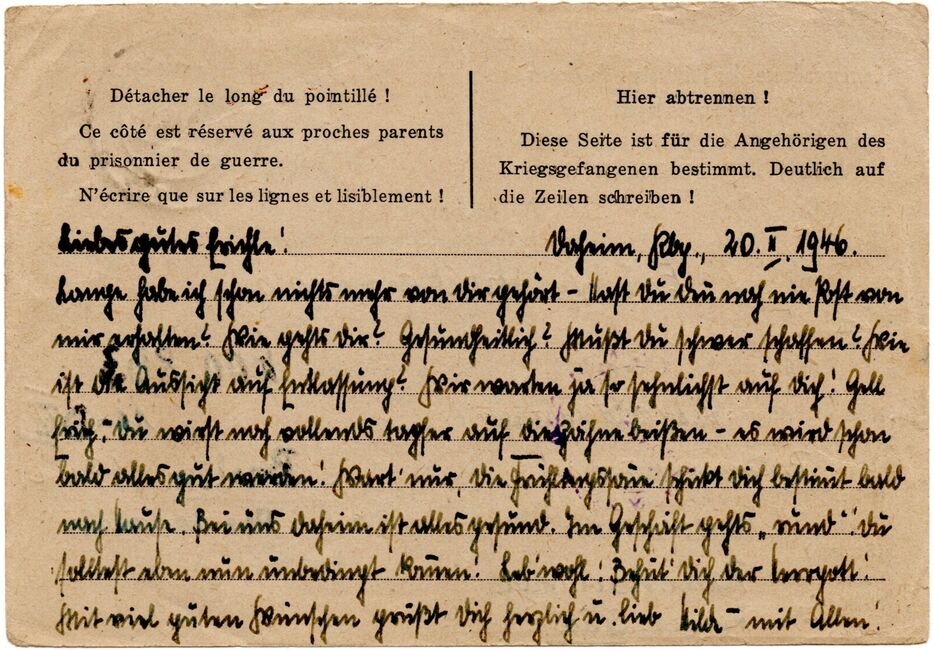 Détacher le long du pointillé !
Ce côté est réservé aux proches parents
du prisonnier de guerre.
N'écrire que sur les lignes et lisiblement !
Hier abtrennen !
Diese Seite ist für die Angehörigen des
Kriegsgefangenen bestimmt. Deutlich auf
die Zeilen schreiben !
Liebes gutes Erichle! Daheim, Kbg., 20. II. 1946.
Lange habe ich schon nichts mehr von dir gehört – Hast du den noch nie Post von
mir erhalten? Wie gehts dir? Gesundheitlich? Mußt du schwer schaffen? Wie
ist die Aussicht auf Entlassung? Wir warten ja so sehnlichst auf dich! Gell
du wirst noch vollends tapfer auf die Zähne beißen – es wird schon
bald alles gut werden! Wart' nur, die schickt dich bestimmt bald
nach Hause. Bei uns daheim ist alles gesund. Im Geschäft gehts „rund“! du
solltest eben nun unbedingt kommen! Leb' wohl! Behüt' dich der Herrgott!
Mit viel guten Wünschen grüßt dich herzlich u. lieb Hilde – mit Allen!